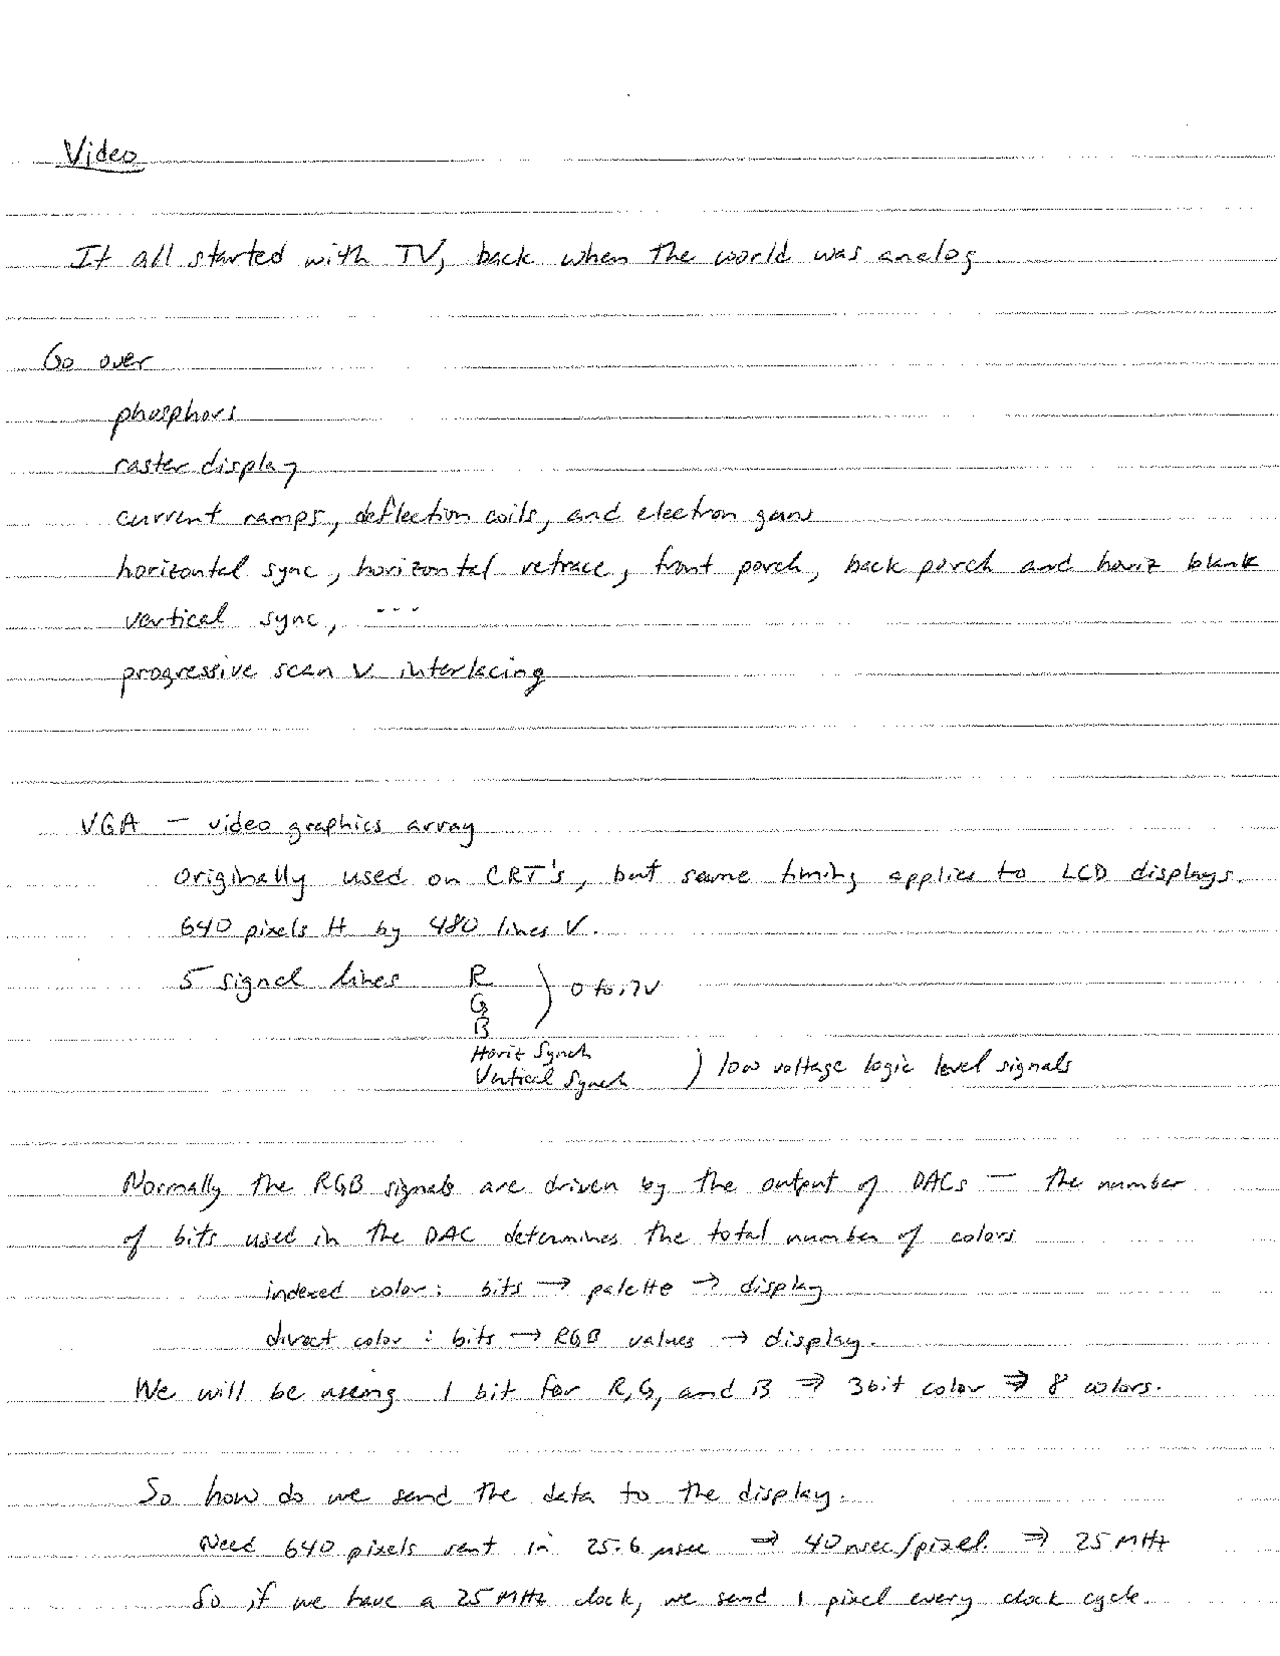 Video
It all started with TV, back when the world was analog
Go over
phosphors
raster display
current ramps, deflection coils, and electron guns
horizontal sync, horizontal retrace, front porch, back porch and horiz blank
vertical sync, ---
progressive scan v. interlacing
VGA — video graphics array
originally used on CRT's, but same timing applies to LCD displays.
640 pixels H by 480 lines V.
5 signal lines R
G
B
) 0 to .7V
Horiz Synch
Vertical Synch
) low voltage logic level signals
Normally the RGB signals are driven by the output of DACs — the number
of bits used in the DAC determines the total number of colors
indexed color: bits → palette → display
direct color: bits → RGB values → display.
We will be using 1 bit for R,G, and B ⇒ 3bit color ⇒ 8 colors.
So how do we send the data to the display.
Need 640 pixels sent in 25.6 µsec ⇒ 40nsec/pixel. ⇒ 25 MHz
So if we have a 25 MHz clock, we send 1 pixel every clock cycle.